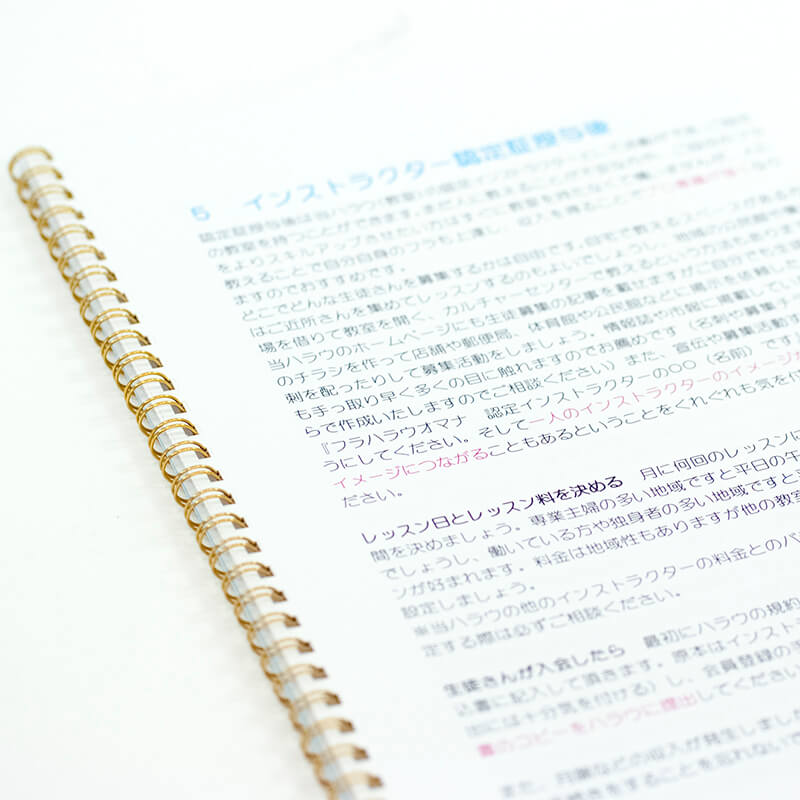 5 インストラクター認定証授与後
認定証授与後は当ハラウ(教室)の認定インストラクターとして
の教室を持つことができます。まだ人に教えることが
をよりスキルアップさせたい方はすぐに教室を持たなくても
教えることで自分自身のフラも上達し、収入を得ることで
ますのでおすすめです。
どこでどんな生徒さんを募集するかは自由です。自宅で教えるスペースがある
はご近所さんを集めてレッスンするのもよいでしょうし、地域の公民館や集
場を借りて教室を開く、カルチャーセンターで教えるという方法もあります
当ハラウのホームページにも生徒募集の記事を載せますがご自分でも
のチラシを作って店舗や郵便局、体育館や公民館などに掲示を依頼した
刺を配ったりして募集活動をしましょう。情報誌や市報に掲載して
も手っ取り早く多くの目に触れますのでお薦めです(名刺や募集チ
らで作成いたしますのでご相談ください)また、宣伝や募集活動す
『フラハラウオマナ 認定インストラクターの○○(名前)です
うにしてください。そして一人のインストラクターのイメージが
イメージにつながることもあるということをくれぐれも気を付
ださい。
レッスン日とレッスン料を決める 月に何回のレッスンに
間を決めましょう。専業主婦の多い地域ですと平日の午
でしょうし、働いている方や独身者の多い地域ですと
ンが好まれます。料金は地域性もありますが他の教室
設定しましょう。
※当ハラウの他のインストラクターの料金とのバ
定する際は必ずご相談ください。
生徒さんが入会したら 最初にハラウの規約
込書に記入して頂きます。原本はインストラ
出には十分気を付ける)し、会員登録の手
書のコピーをハラウに提出してください
また、月謝などの収入が発生しました
続きをすることを忘れないで